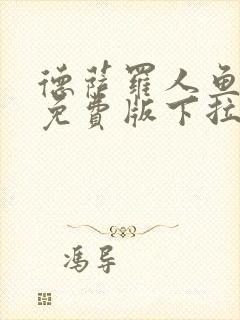 德萨罗人鱼
免费版下拉
冯导